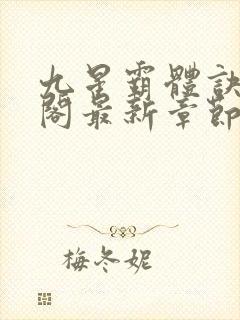 九星霸體訣
閣最新章節
梅冬妮